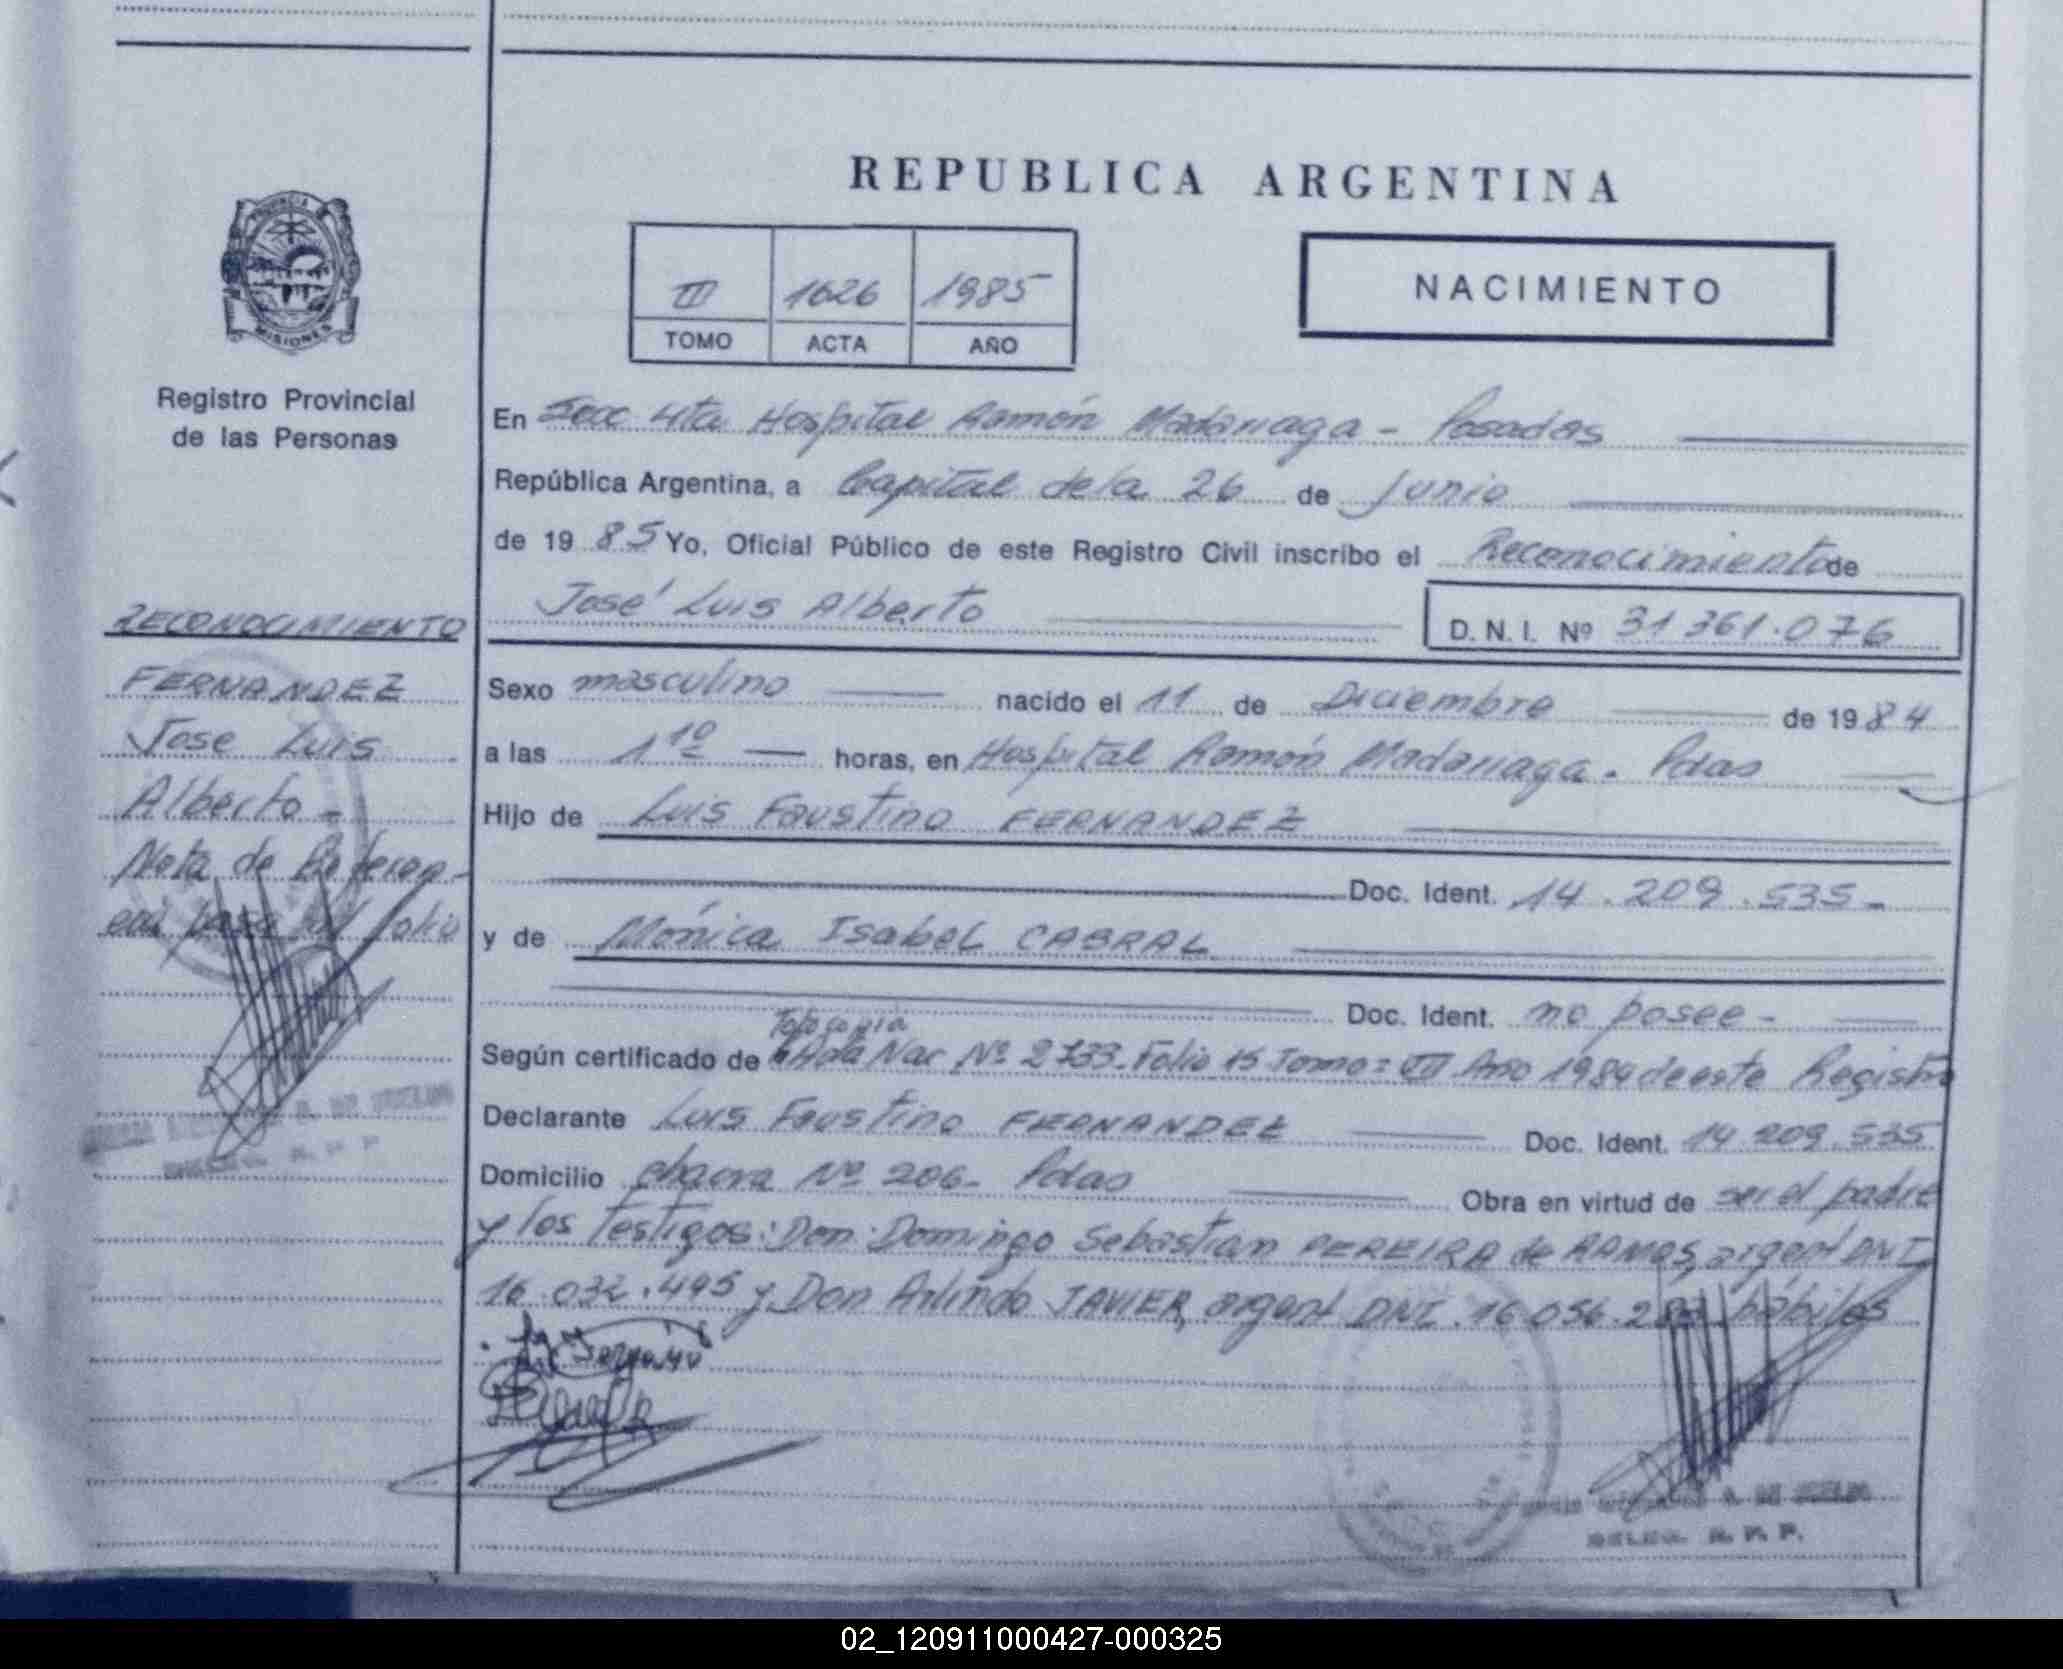 REPUBLICA ARGENTINA
III 1626 1985
TOMO ACTA AÑO
NACIMIENTO
PROVINCIA DE
MISIONES
Registro Provincial
de las Personas
RECONOCIMIENTO
FERNANDEZ
Jose Luis
Alberto -
Nota de Referen-
cia pasa al folio
En Secc 4ta Hospital Ramón Madariaga - Posadas
República Argentina, a Capital de la 26 de Junio
de 1985 Yo, Oficial Público de este Registro Civil inscribo el Reconocimiento de
José Luis Alberto
D. N. I. Nº 31 361.076
Sexo masculino nacido el 11 de Diciembre de 1984
a las 1 10 horas, en Hospital Ramón Madariaga. Pdas
Hijo de Luis Faustino FERNANDEZ
Doc. Ident. 14.209.535-
y de Mónica Isabel CABRAL
Doc. Ident. no posee -
Fotocopia
Según certificado de Acta Nac Nº 2733- Folio 15 Tomo= VII Año 1984 de este Registro
Declarante Luis Faustino FERNANDEZ Doc. Ident. 14 209.535
Domicilio chacra Nº 206- Pdas Obra en virtud de ser el padre
y los Testigos: Don Domingo Sebastian PEREIRA de RAMOS, argent DNI
16.032.495 y Don Arlindo JAVIER, argent DNI. 16 056. hábiles
DELEG. R. P. P.
02_120911000427-000325